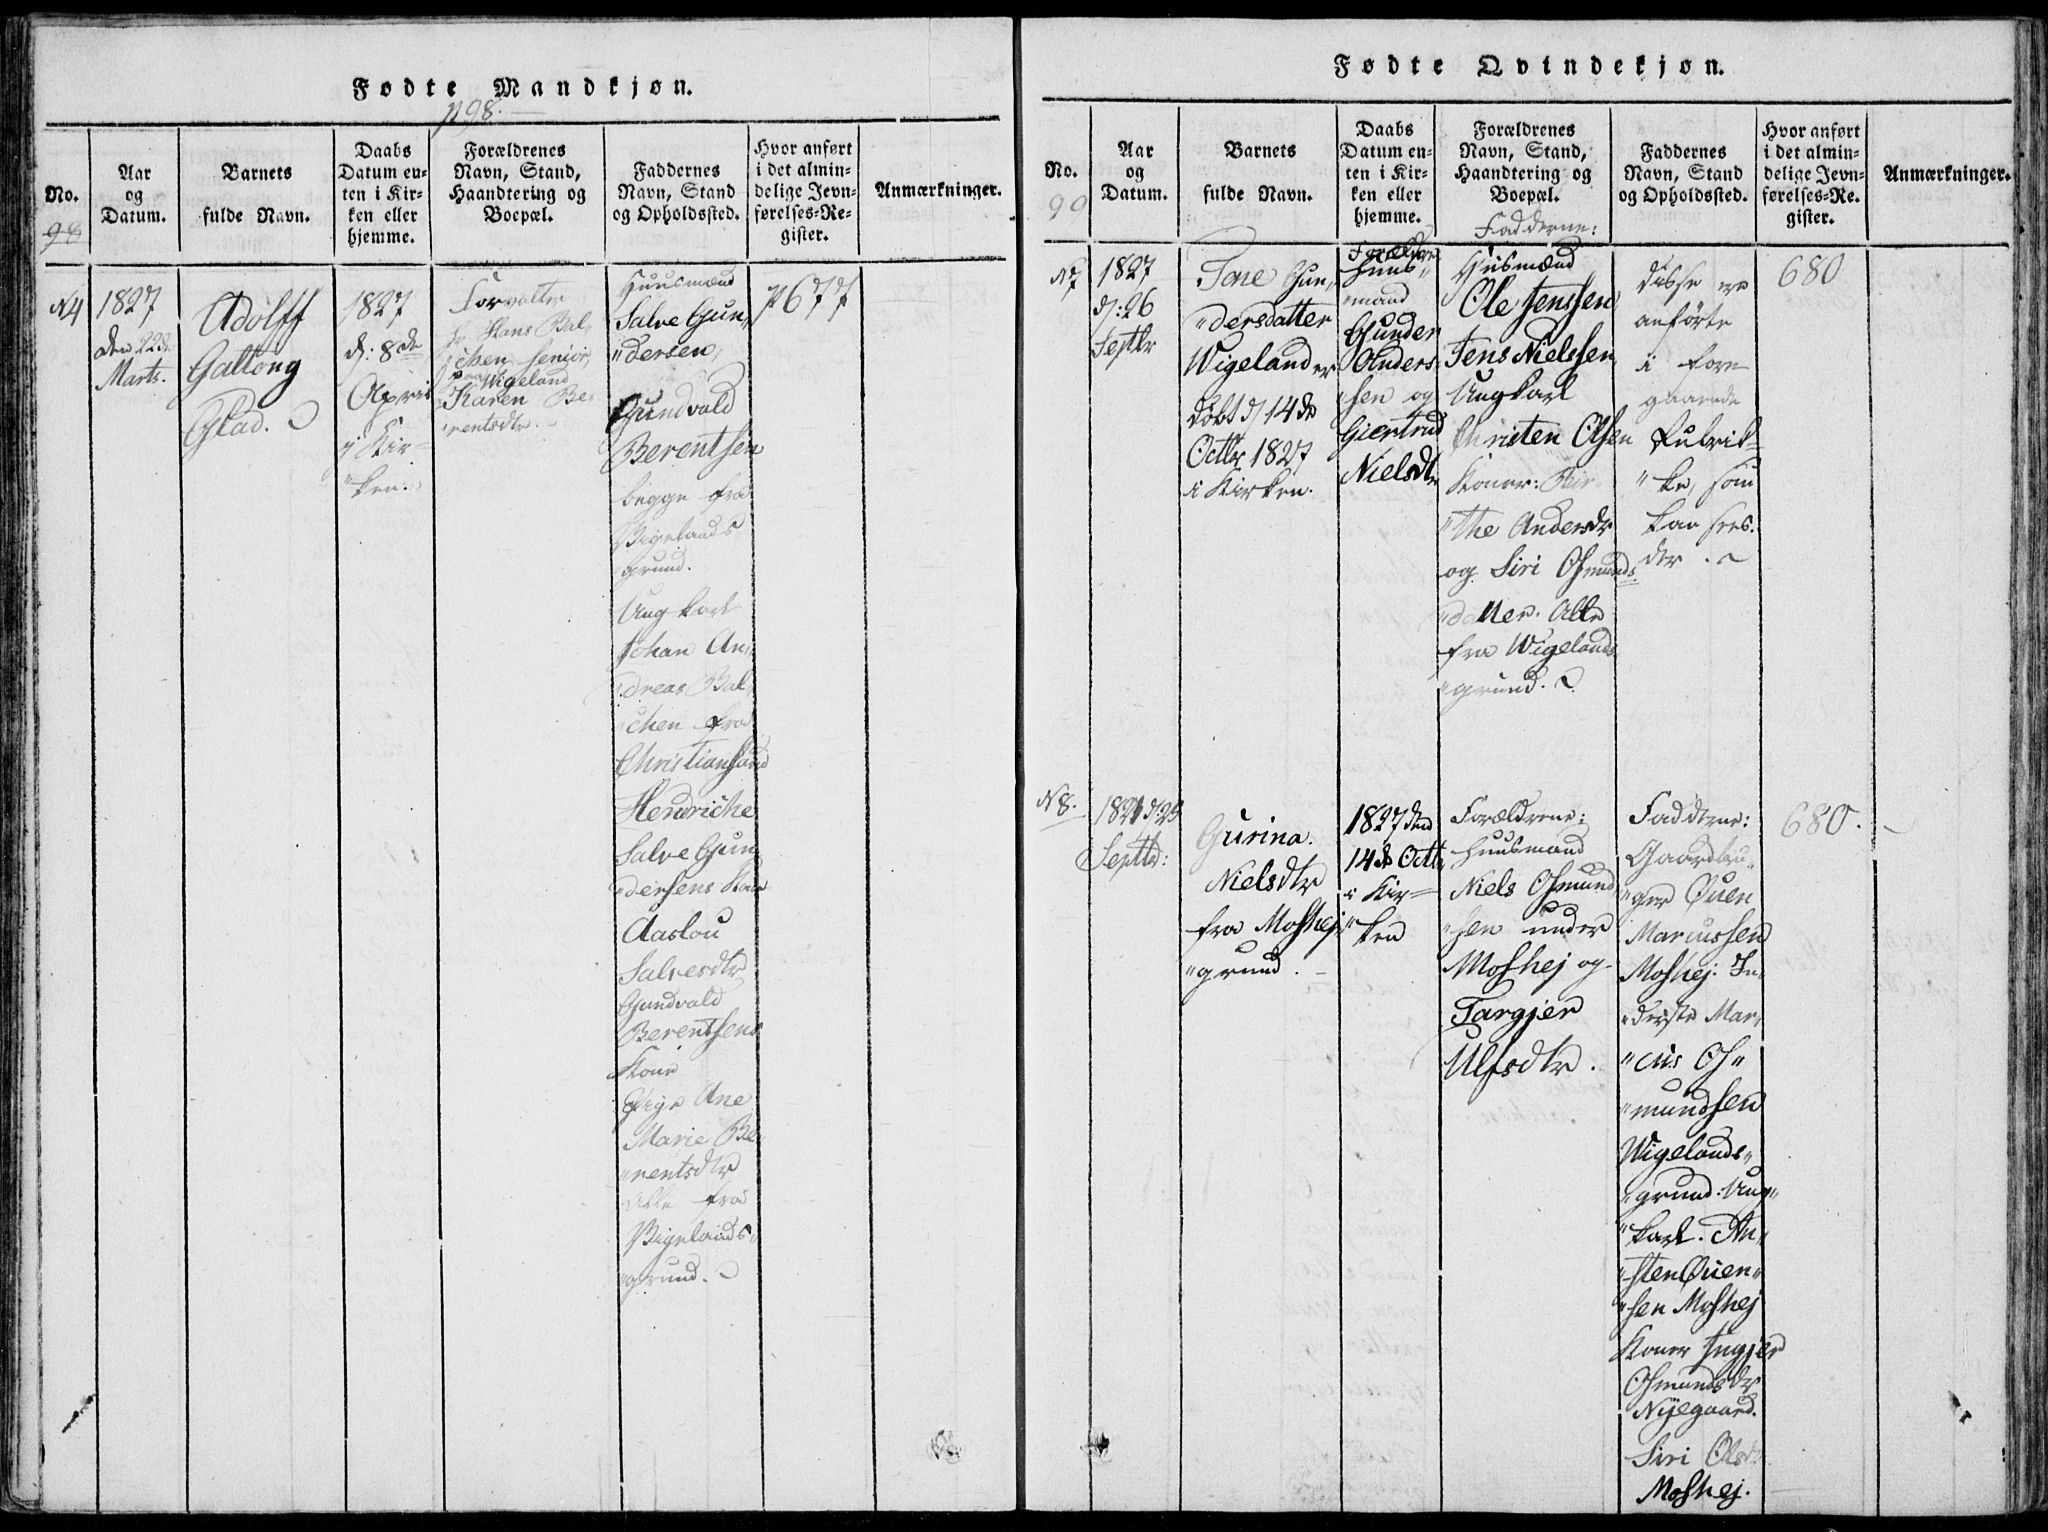 Fødte Mandkjøn.
p 98.
No.
98
Aar
og
Datum.
Barnets
fulde Navn.
Daabs
Datum en-
ten i Kir-
ken eller
hjemme.
Forældrenes
Navn, Stand,
Haandtering og
Boepæl.
Faddernes
Navn, Stand
og Opholdssted.
Hvor anført
i det almin-
delige Jevn-
førelses-Re-
gister.
Anmærkninger.
N4
1827
den 22de
Marts.
Adolff
Galtong
1827
d: 8de
April
i Kir-
"ken.
Forvalter
Hr. Hans Bal,
"chen senior,
paa Wigeland
Karen Be-
"rentsdtr.
Huusmænd
Salve Gun,
"dersen,
Gundvald
Berentsen
begge fra
Vigelands
grund.
Ung karl
Johan An,
"dreas Bal,
"chen fra
Christiansand
Hendriche
Salve Gun,
"dersens Kone
Aaslou
Salvesdtr
Gundvald
Berentsens
Kone
Pige Ane
Marie Be,
"rentsdtr
Alle fra
Vigelands"
"grund.
p 677
Fødte Qvindekjøn.
No.
99
Aar
og
Datum.
Barnets
fulde Navn.
Daabs
Datum en-
ten i Kir-
ken eller
hjemme.
Forældrenes
Navn, Stand,
Haandtering og
Boepæl.
Faddernes
Navn, Stand
og Opholdssted.
Hvor anført
i det almin-
delige Jevn-
førelses-Re-
gister.
Anmærkninger.
N7
1827
d: 26
Septbr
Tone Gun,
"dersdatter
Wigeland er
døbt d 14de
Octbr 1827
i Kirken.
Forældre
Huus"
"mand
Gunder
Anders-
"sen og
Giertrud
Nielsdtr
Fadderne:
Husmænd
Ole Jenssen
Jens Nielssen
Ungkarl
Christen Olsen
Koner: Bir
"the Andersdr
og Siri Osmunds
"datter. Alle
fra Wigelands
"grund.
disse er
anførte
i fore
gaaende
Rubrik-
"ke, som
kan sees.
der.
680
N8.
1827 d: 23
Septbr:
Gurina.
Nielsdtr
fra Moshej,
"grund.
1827 den
14de Octbr
i Kir-
"ken
Forældrene:
Huusmand
Niels Osmund,
"sen under
Moshej og
Targjer
Ulfsdtr.
Fadderne:
Gaardbru,
"ger Øuen
Marcussen
Moshej: In,
"derste Mar,
"cus Os"
"mundsen
Wigelands"
"grund: Ung"
"karl. An"
"sten Øuen"
"sen Moshej
Koner Ingjer
Osmundsdr
Nÿegaard.
Siri Olsdr
Moshej.
680.